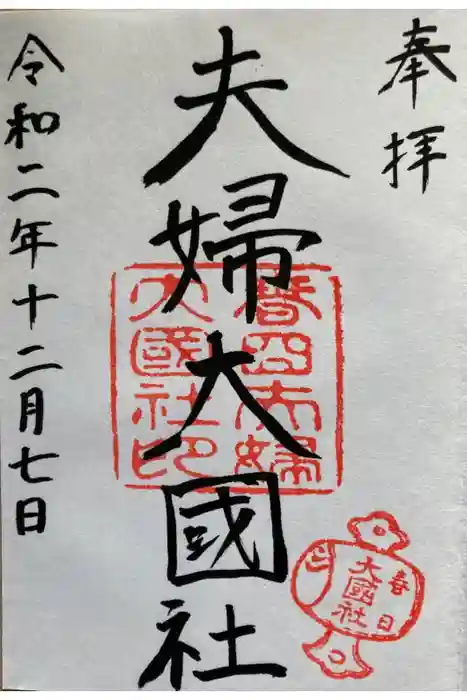 奉拝
夫婦大國社
令和二年十二月七日
春日夫婦
大國社印
春日
大國社